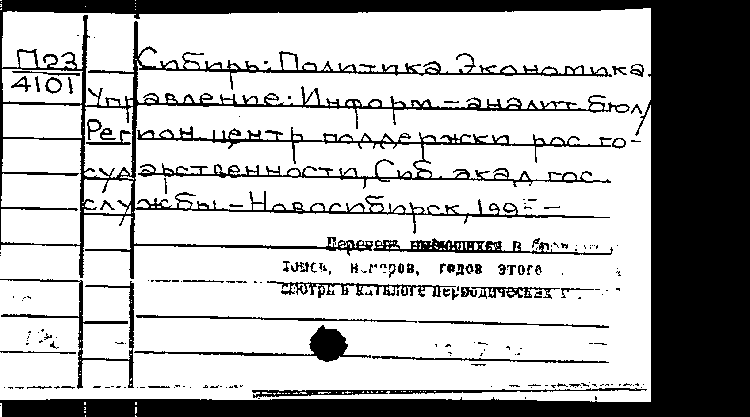 П23
4101
Сибирь: Политика Экономика.
Управление: Информ – аналит бюл/
Регион. центр поддержки рос. го-
сударственности, Сиб. акад гос.
службы – Новосибирск, 1995 –
Перечень имеющихся в
томов, номеров, годов этого
смотри в каталоге периодических